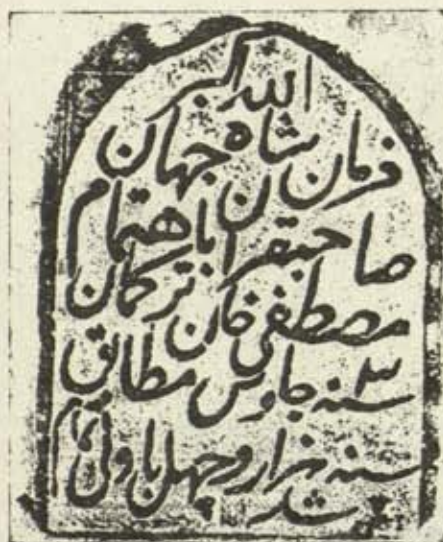 الله اكبر
فرمان شاه جهان
صاحبقران باهتمام
مصطفى خان تركمان
سنه ۳ جلوس مطابق
سنه هزار و چهل باولى تمام
شد